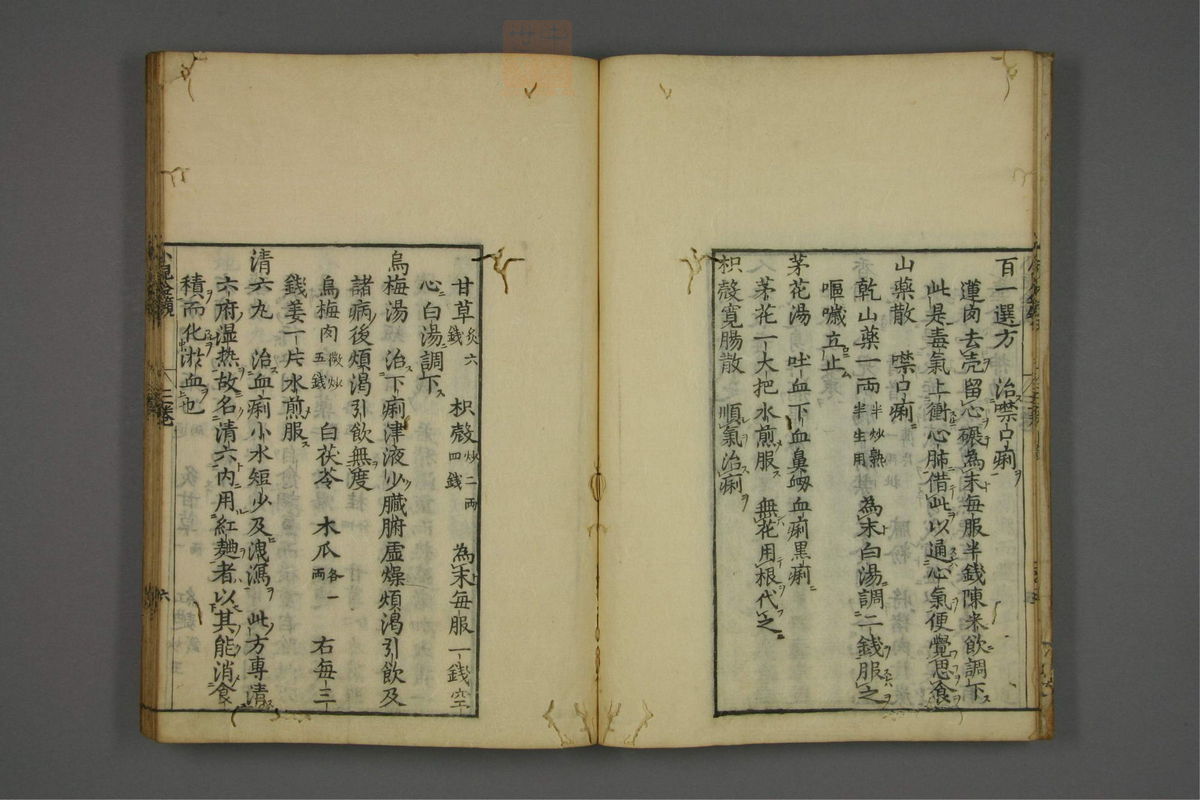 百一選方　治噤口痢
蓮肉去壳留心碾為末每服半錢陳米飲調下
此是毒氣上衝心肺借此以通心氣便覺思食
山藥散　噤口痢
乾山藥一兩半炒熟半生用　為末白湯調二錢服之
嘔噦立止
茅花湯　吐血下血鼻衂血痢黑痢
茅花一大把水煎服　無花用根代之
枳殻寛腸散　順氣治痢
甘草炙六錢　枳殻炒二兩四錢　為末每服一錢空
心白湯調下
烏梅湯　治下痢津液少臟腑虛燥煩渴引飲及
諸病後煩渴引飲無度
烏梅肉微炒五錢　白茯苓　木瓜各一兩　右每三
錢姜一片水煎服
清六丸　治血痢小水短少及洩瀉　此方專清
六府湿热故名清六内用紅麯者以其能消食
積而化淤血也
二卷
六